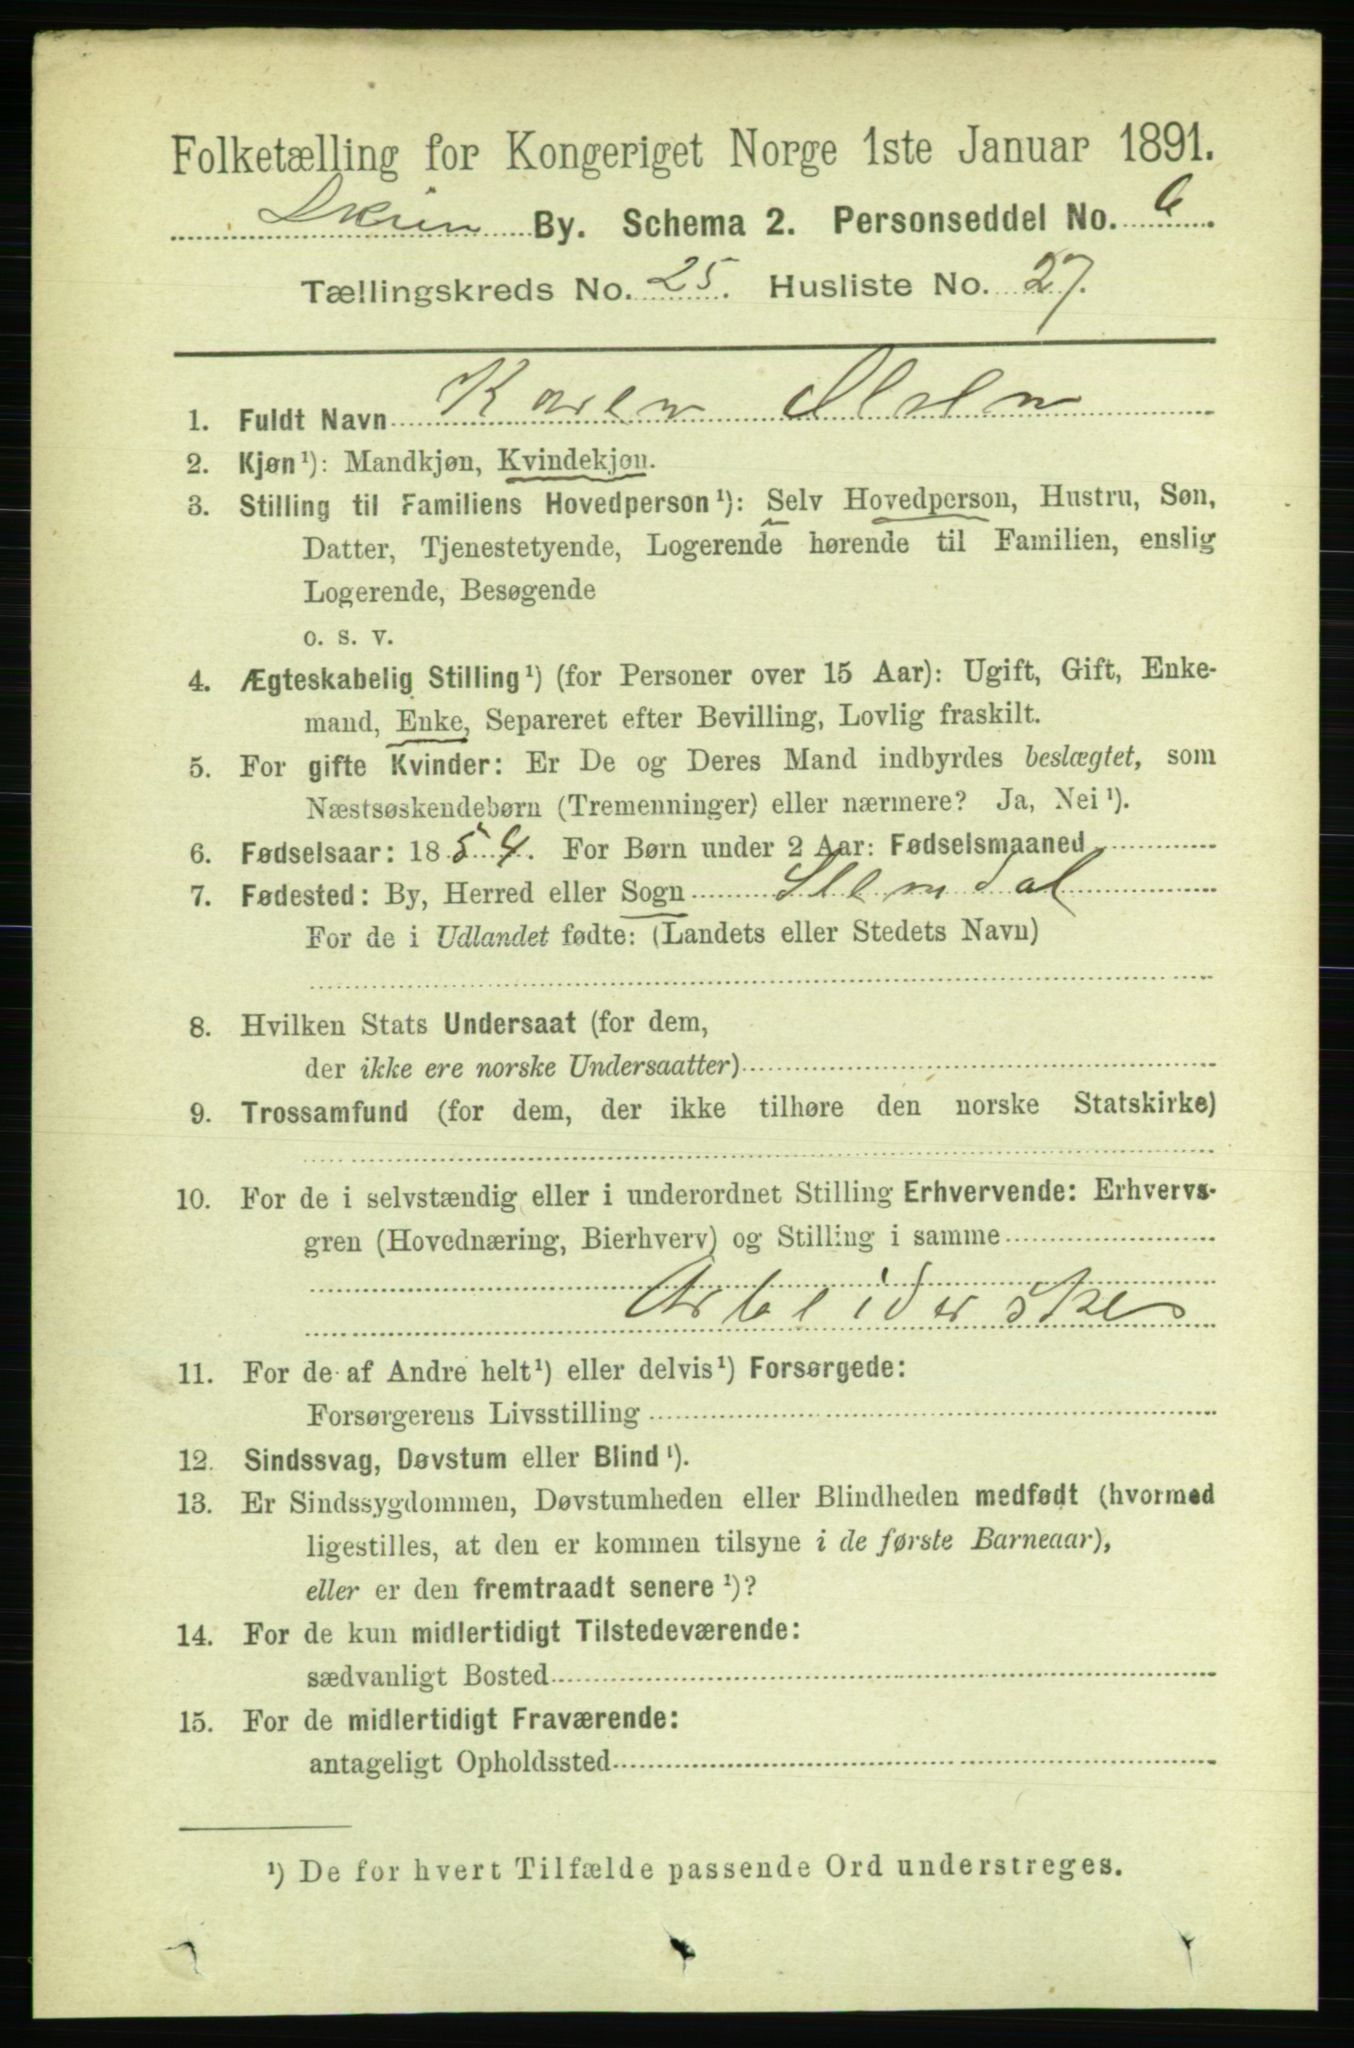 Folketælling for Kongeriget Norge 1ste Januar 1891.
Skien By. Schema 2. Personseddel No. 6.
Tællingskreds No. 25. Husliste No. 27.
1. Fuldt Navn Karen Olsen
2. Kjøn¹): Mandkjøn, Kvindekjøn.
3. Stilling til Familiens Hovedperson¹): Selv Hovedperson, Hustru, Søn,
Datter, Tjenestetyende, Logerende hørende til Familien, enslig
Logerende, Besøgende
o. s. v.
4. Ægteskabelig Stilling¹) (for Personer over 15 Aar): Ugift, Gift, Enke-
mand, Enke, Separeret efter Bevilling, Lovlig fraskilt.
5. For gifte Kvinder: Er De og Deres Mand indbyrdes beslægtet, som
Næstsøskendebørn (Tremenninger) eller nærmere? Ja, Nei¹).
6. Fødselsaar: 1854. For Børn under 2 Aar: Fødselsmaaned
7. Fødested: By, Herred eller Sogn Slemdal
For de i Udlandet fødte: (Landets eller Stedets Navn)
8. Hvilken Stats Undersaat (for dem,
der ikke ere norske Undersaatter)
9. Trossamfund (for dem, der ikke tilhøre den norske Statskirke)
10. For de i selvstændig eller i underordnet Stilling Erhvervende: Erhvervs-
gren (Hovednæring, Bierhverv) og Stilling i samme
Arbeiderske
11. For de af Andre helt¹) eller delvis¹) Forsørgede:
Forsørgerens Livsstilling
12. Sindssvag, Døvstum eller Blind¹).
13. Er Sindssygdommen, Døvstumheden eller Blindheden medfødt (hvormed
ligestilles, at den er kommen tilsyne i de første Barneaar),
eller er den fremtraadt senere¹)?
14. For de kun midlertidigt Tilstedeværende:
sædvanligt Bosted
15. For de midlertidigt Fraværende:
antageligt Opholdssted
¹) De for hvert Tilfælde passende Ord understreges.